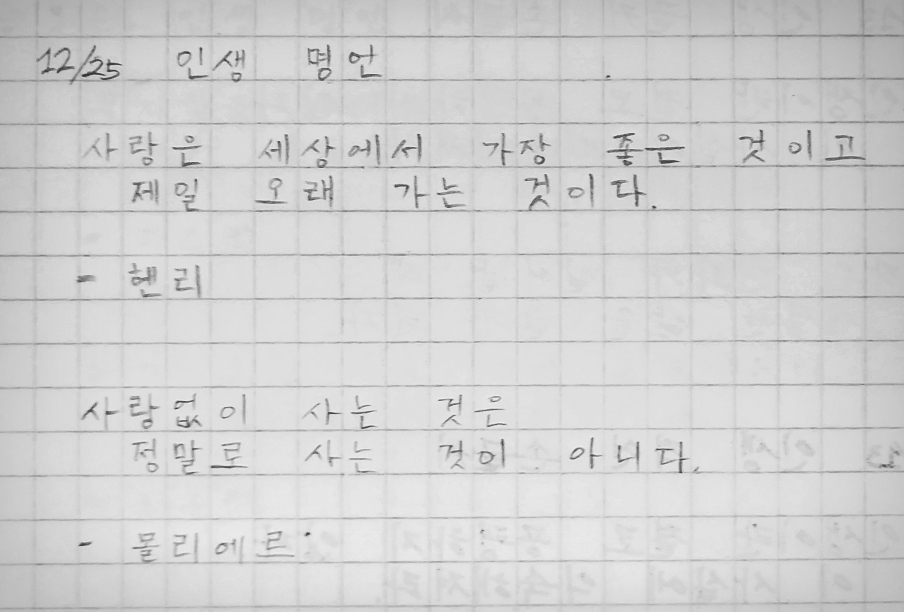 12/25 인생 명언
사랑은 세상에서 가장 좋은 것이고
제일 오래 가는 것이다.
- 헨리
사랑없이 사는 것은
정말로 사는 것이 아니다.
- 몰리에르